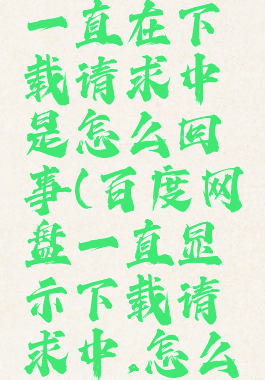 一直在下
载请求中
是怎么回
事(百度网
盘一直显
示下载请
求中,怎么